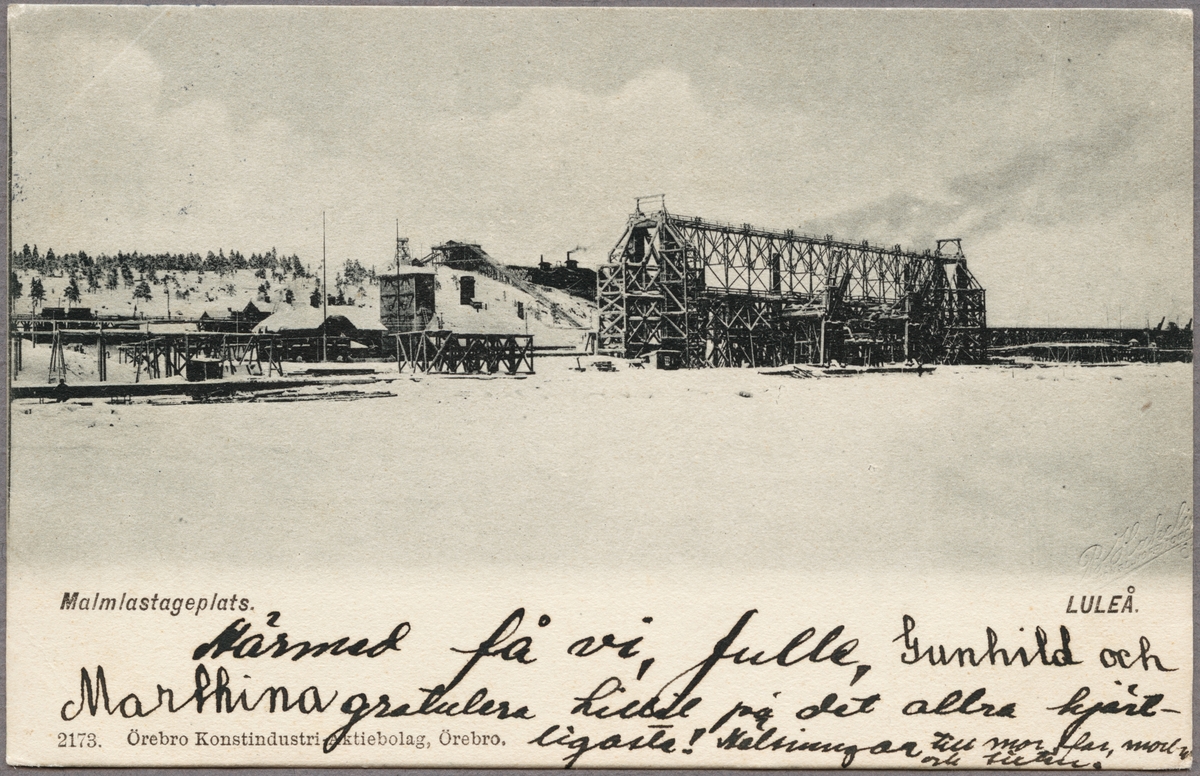 Malmlastageplats.
LULEÅ.
Härmed få vi, Julle, Gunhild och
Marthina gratulera på det allra hjärt-
ligaste! Helsningar till mor, far,
och
2173. Örebro Konstindustri-Aktiebolag, Örebro.